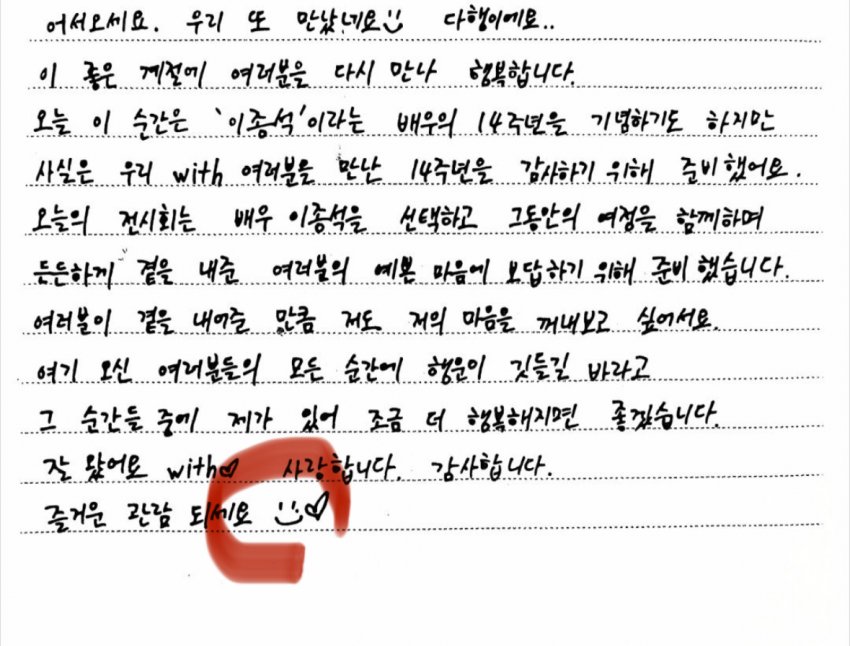 어서오세요. 우리 또 만났네요 다행이에요..
이 좋은 계절에 여러분을 다시 만나 행복합니다.
오늘 이 순간은 '이종석'이라는 배우의 14주년을 기념하기도 하지만
사실은 우리 with 여러분을 만난 14주년을 감사하기 위해 준비했어요.
오늘의 전시회는 배우 이종석을 선택하고 그동안의 여정을 함께하며
든든하게 곁을 내준 여러분의 예쁜 마음에 보답하기 위해 준비했습니다.
여러분이 곁을 내어준 만큼 저도 저의 마음을 꺼내보고 싶어서요.
여기 오신 여러분들의 모든 순간에 행운이 깃들길 바라고
그 순간들 중에 제가 있어 조금 더 행복해지면 좋겠습니다.
잘 왔어요 with♡ 사랑합니다. 감사합니다.
즐거운 관람 되세요 ♡